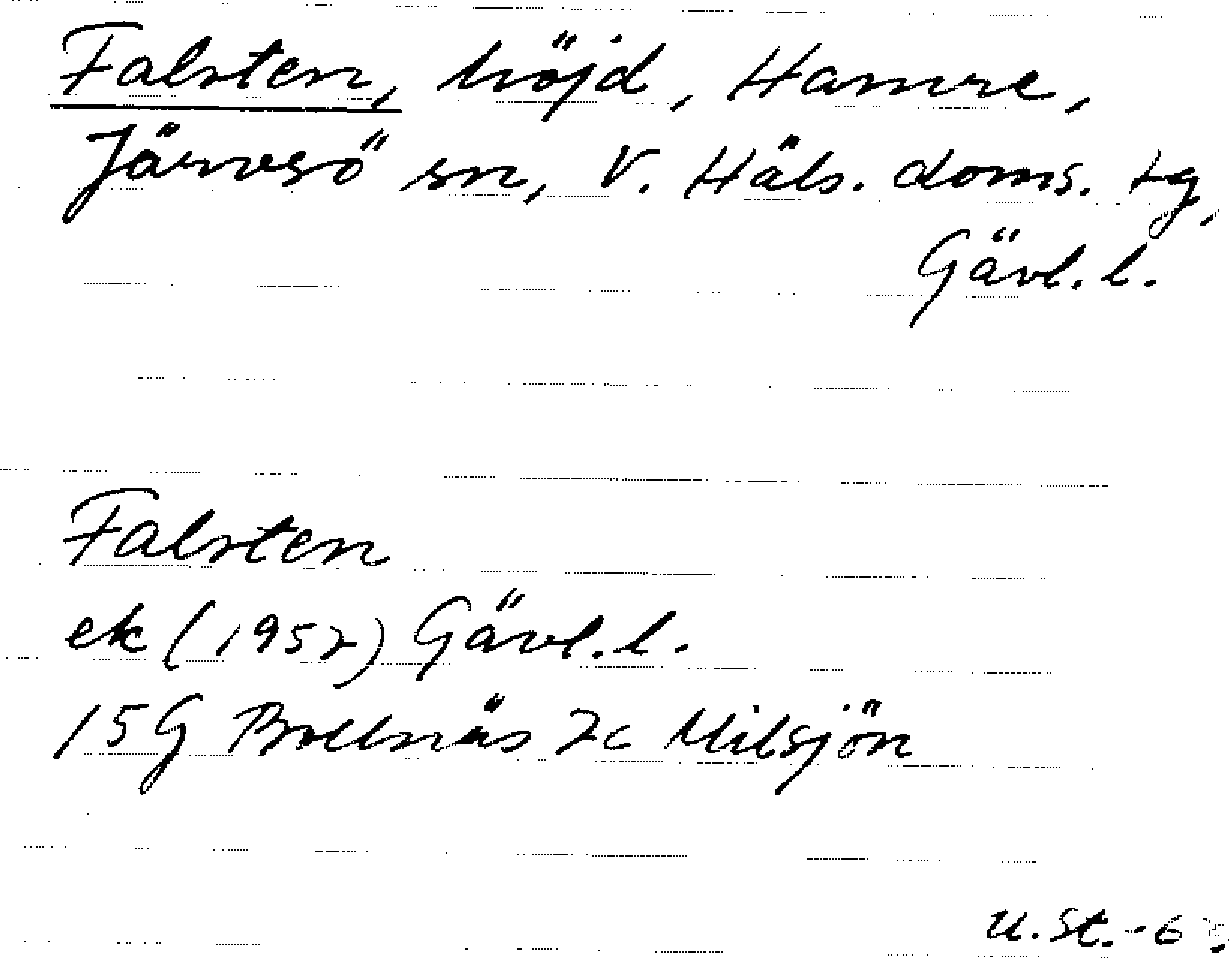 Falsten, höjd, Hamre,
Järvsö sn, V. Häls. doms. tg,
Gävl. l.
Falsten
ek (1952) Gävl. l.
15G Bollnäs 7c Milsjön
U. St. -6